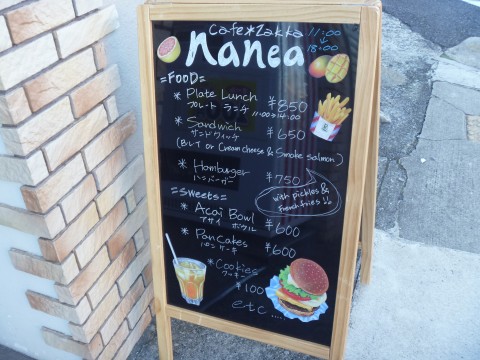 Cafe*Zakka 11:00
nanea 18:00
=FOOD=
* Plate Lunch ¥850
プレート ランチ 11:00→14:00
* Sandwich ¥650
サンドウィッチ
(BLT or Cream cheese & Smoke salmon)
* Hamburger ¥750
ハンバーガー
with pickles &
french fries!!
=Sweets=
* Acai Bowl ¥600
アサイ ボウル
* Pancakes ¥600
パンケーキ
* Cookies
クッキー ¥100
etc.....